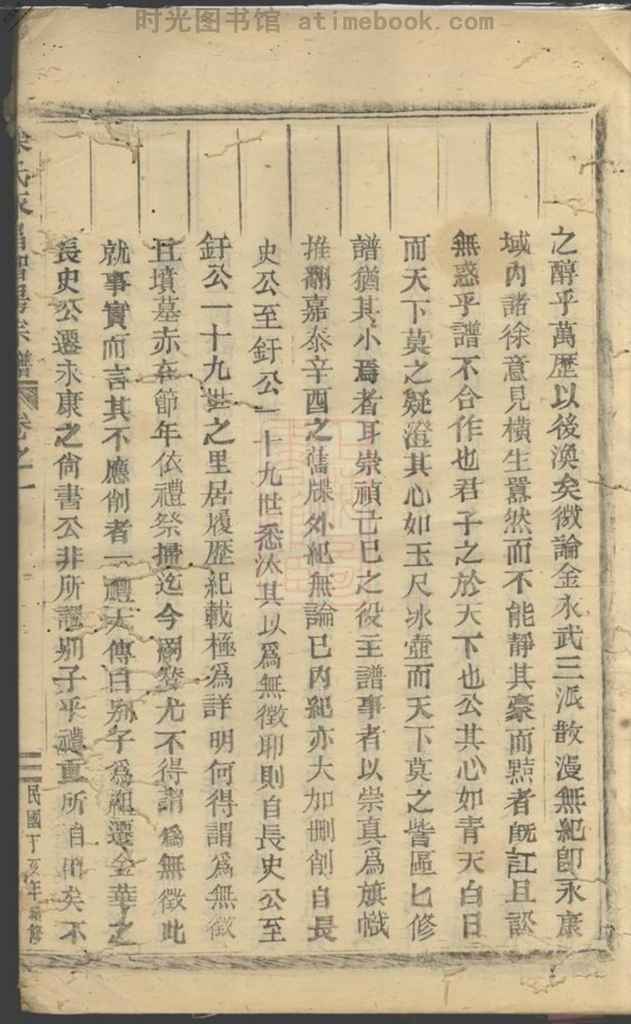 时光图书馆 atimebook.com
之醇乎萬歴以後渙矣微論金永武三派散漫無紀卽永康
域內諸徐意見橫生囂然而不能靜其豪而黠者旣訌且訟
無惑乎譜不合作也君子之於天下也公其心如靑天白日
而天下莫之疑澄其心如玉尺冰壺而天下莫之訾區匕修
譜猶其小焉者耳崇禎己巳之役主譜事者以崇真爲旗幟
推翻嘉泰辛酉之舊牒外紀無論已內紀亦大加刪削自長
史公至釬公一十九世悉汰其以爲無徵耶則自長史公至
釬公一十九世之里居履歴紀載極爲詳明何得謂爲無徵
且墳墓赤在節年依禮祭掃迄今罔替尤不得謂爲無徵此
就事實而言其不應削者一禮大傳曰别子爲祖遷金華之
長史公遷永康之尙書公非所謂别子乎禮重所自出矣不
宗譜 卷之一
民國丁亥年